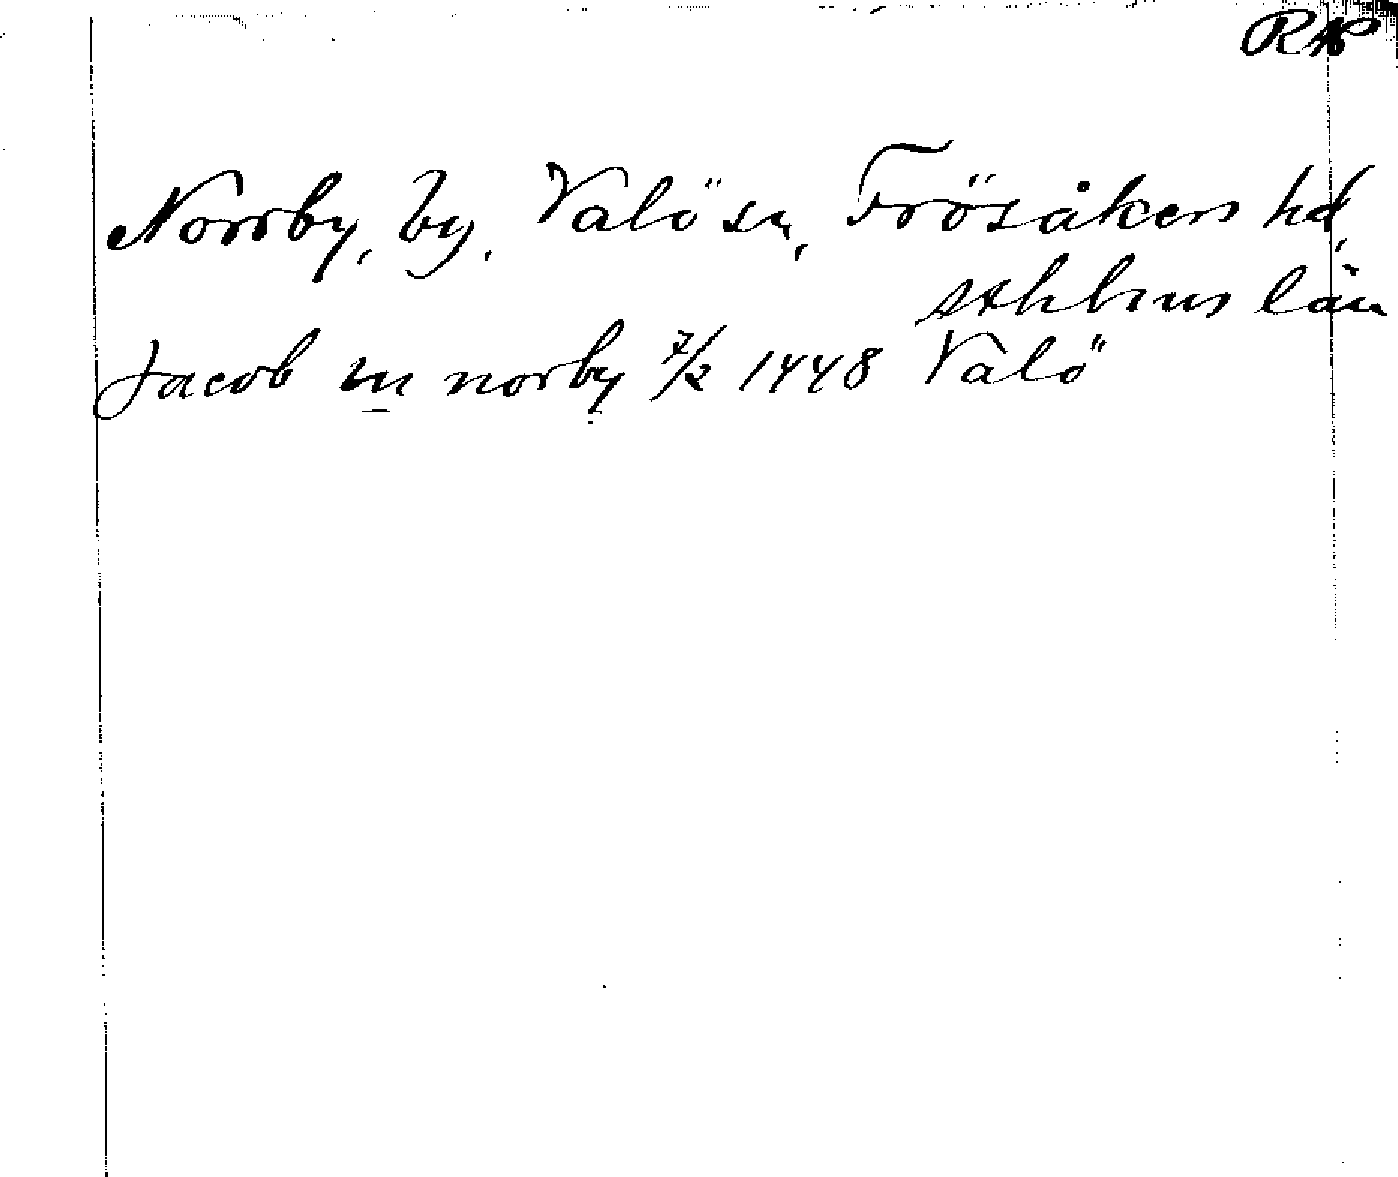 RAP
Norrby, by, Valö sn, Frösåkers hd,
sthlms län
Jacob in norby 7/2 1448 Valö